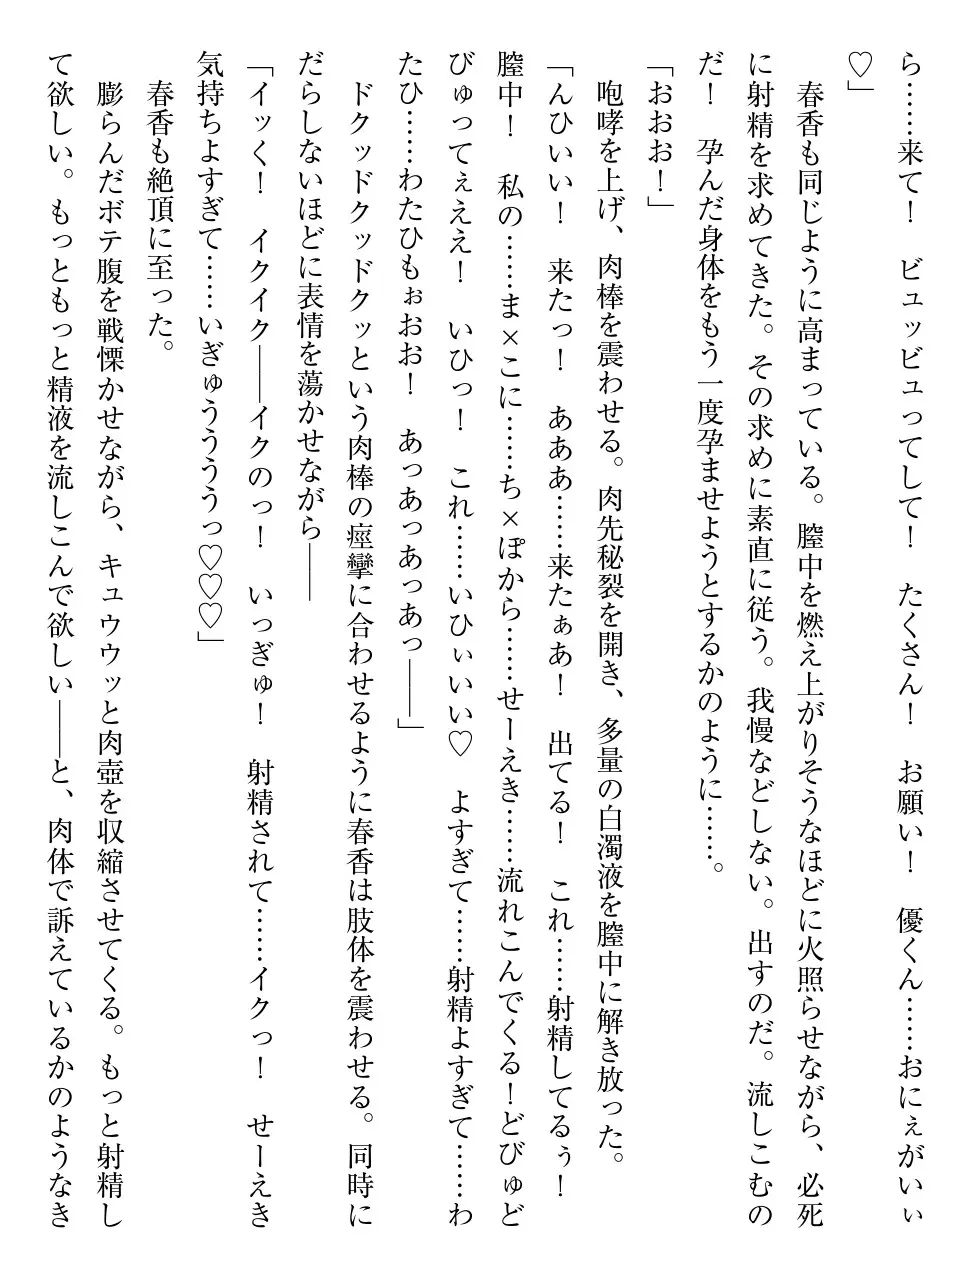 ら……来て！　ビュッビュってして！　たくさん！　お願い！　優くん……おにぇがいぃ
♡」
　春香も同じように高まっている。膣中を燃え上がりそうなほどに火照らせながら、必死
に射精を求めてきた。その求めに素直に従う。我慢などしない。出すのだ。流しこむの
だ！　孕んだ身体をもう一度孕ませようとするかのように……。
「おおお！」
　咆哮を上げ、肉棒を震わせる。肉先秘裂を開き、多量の白濁液を膣中に解き放った。
「んひいい！　来たっ！　あああ……来たぁあ！　出てる！　これ……射精してるぅ！
膣中！　私の……ま×こに……ち×ぽから……せーえき……流れこんでくる！どびゅど
びゅってぇええ！　いひっ！　これ……いひぃいい♡　よすぎて……射精よすぎて……わ
たひ……わたひもぉおお！　あっあっあっあっ――」
　ドクッドクッドクッという肉棒の痙攣に合わせるように春香は肢体を震わせる。同時に
だらしないほどに表情を蕩かせながら――
「イッく！　イクイク――イクのっ！　いっぎゅ！　射精されて……イクっ！　せーえき
気持ちよすぎて……いぎゅうううっ♡♡♡」
　春香も絶頂に至った。
　膨らんだボテ腹を戦慄かせながら、キュウウッと肉壺を収縮させてくる。もっと射精し
て欲しい。もっともっと精液を流しこんで欲しい――と、肉体で訴えているかのようなき